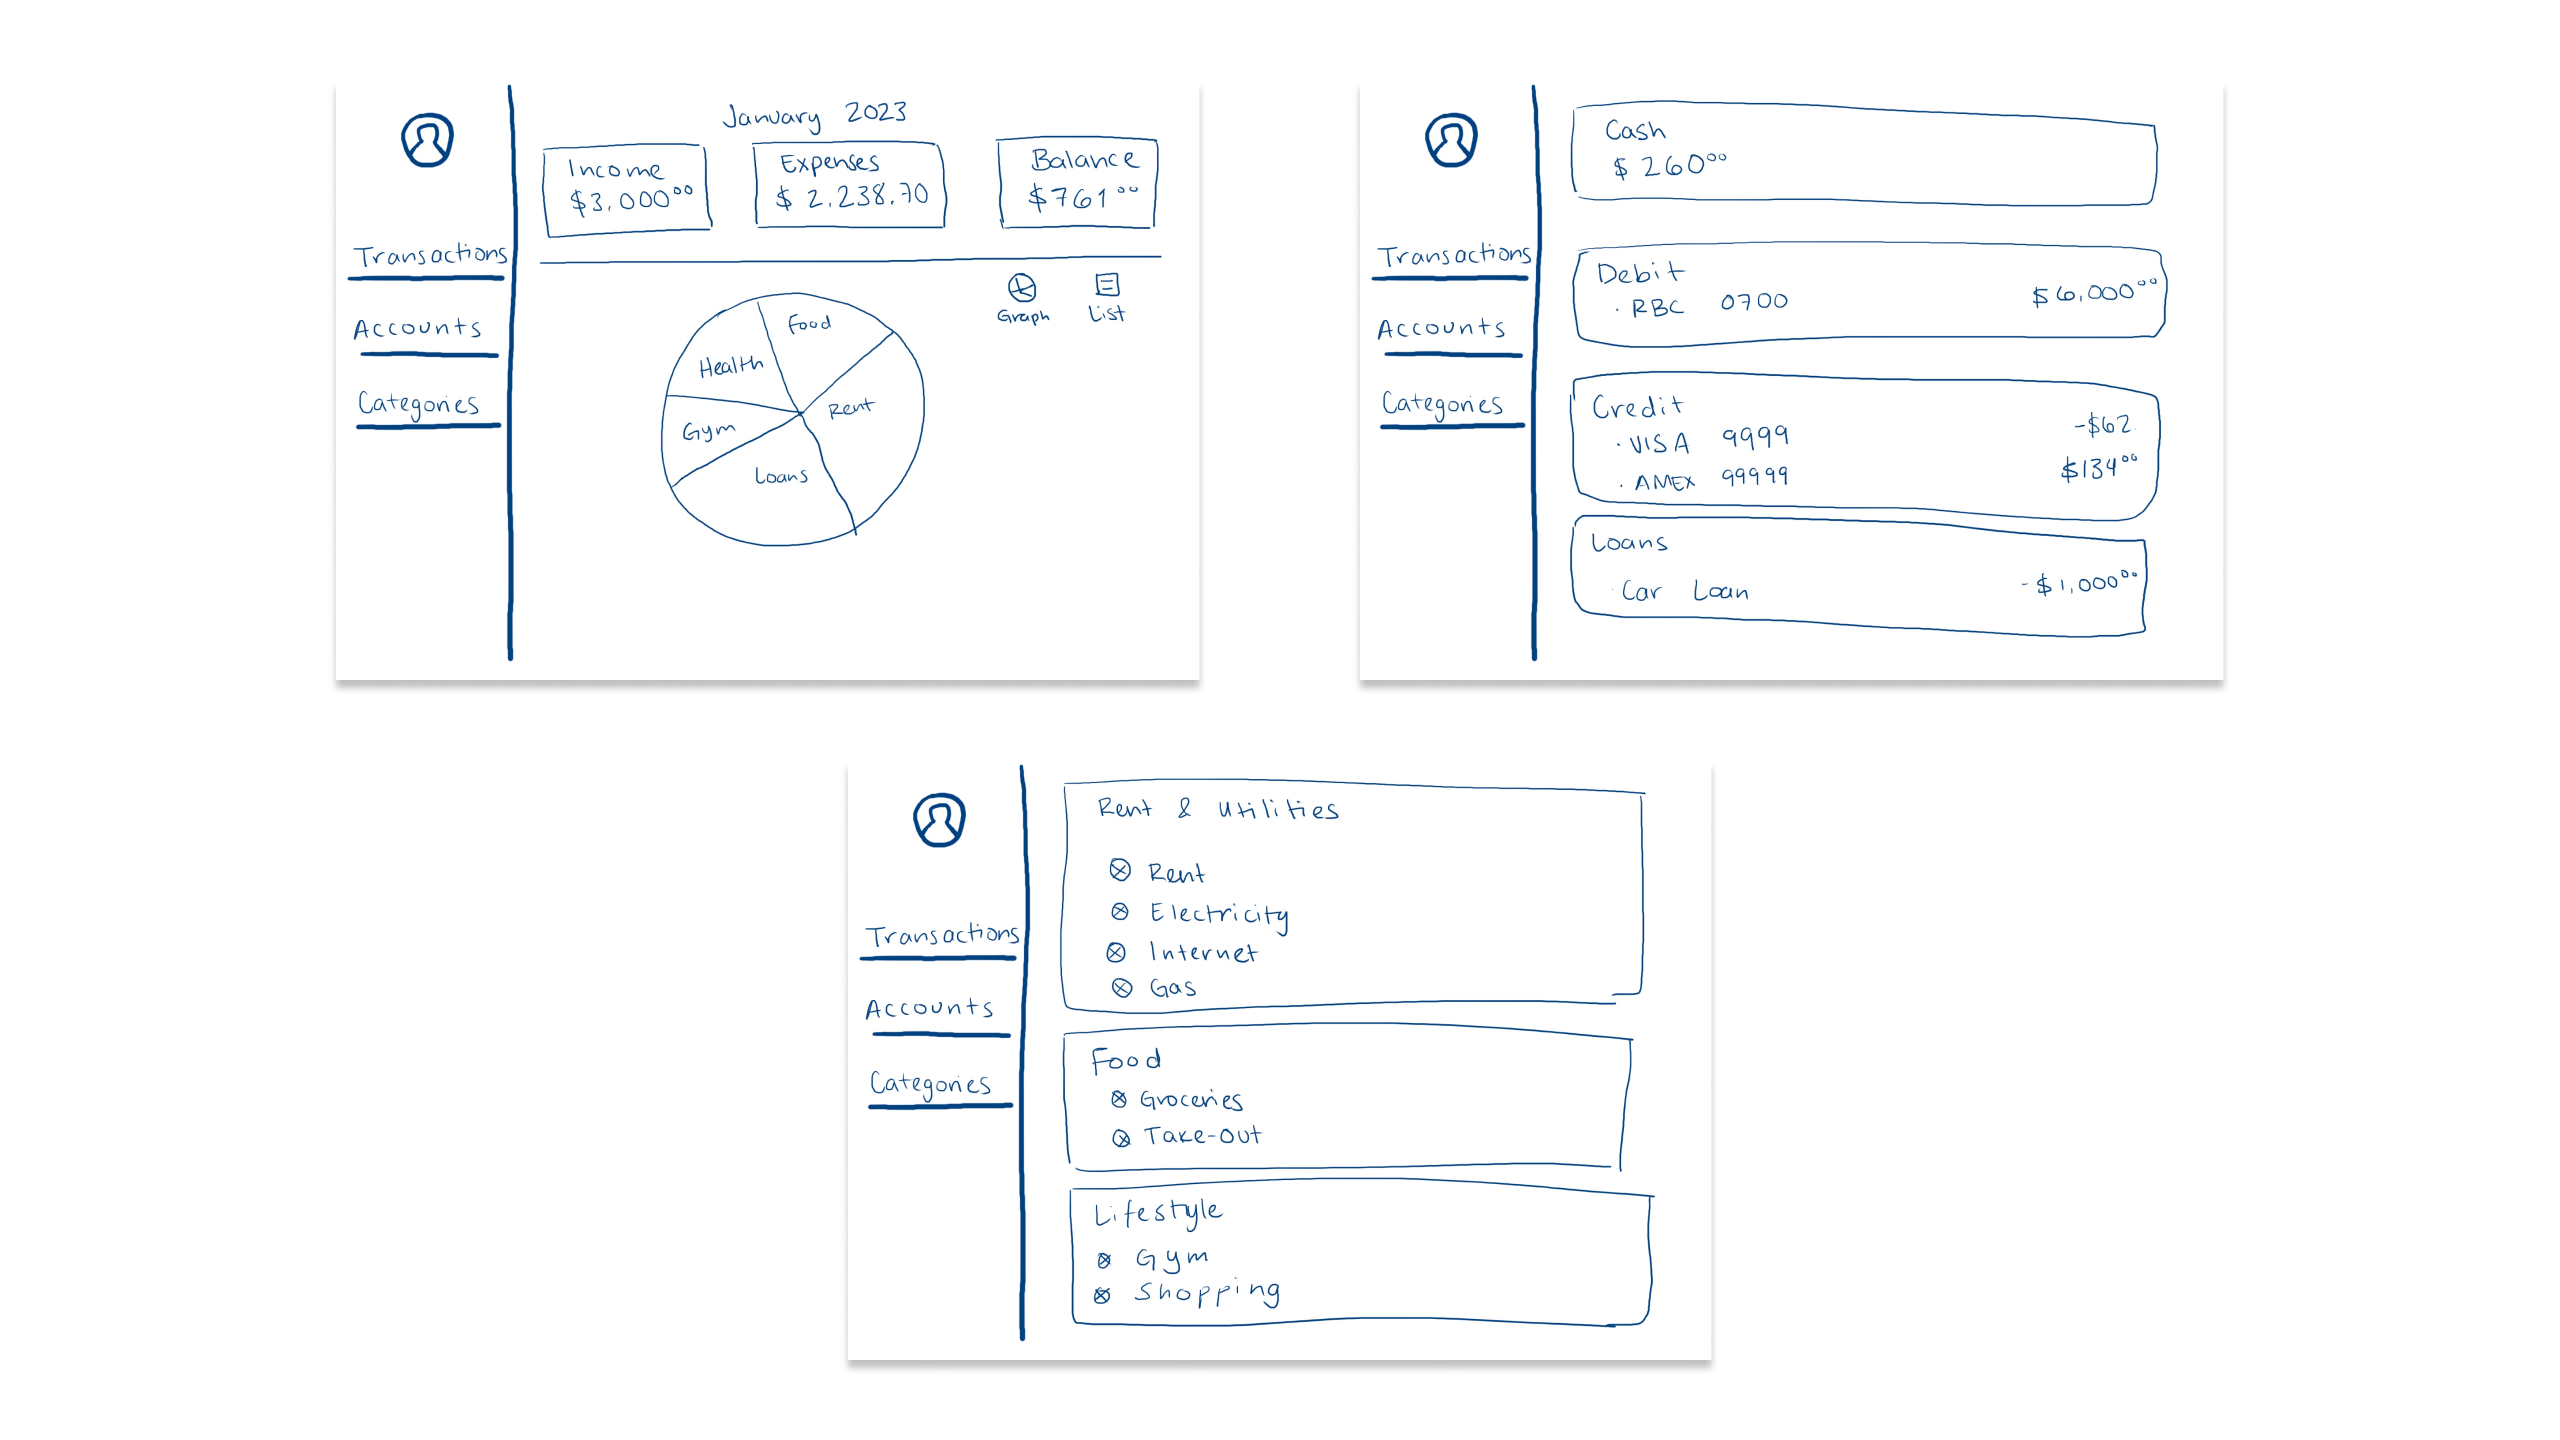 Transactions
Accounts
Categories
January 2023
Income
$3,000⁰⁰
Expenses
$2,238.70
Balance
$761⁰⁰
Graph
List
Food
Health
Rent
Gym
Loans
Transactions
Accounts
Categories
Cash
$260⁰⁰
Debit
· RBC 0700 $6,000⁰⁰
Credit
· VISA 9999 -$62
· AMEX 99999 $134⁰⁰
Loans
· Car Loan -$1,000⁰⁰
Transactions
Accounts
Categories
Rent & Utilities
Rent
Electricity
Internet
Gas
Food
Groceries
Take-Out
Lifestyle
Gym
Shopping